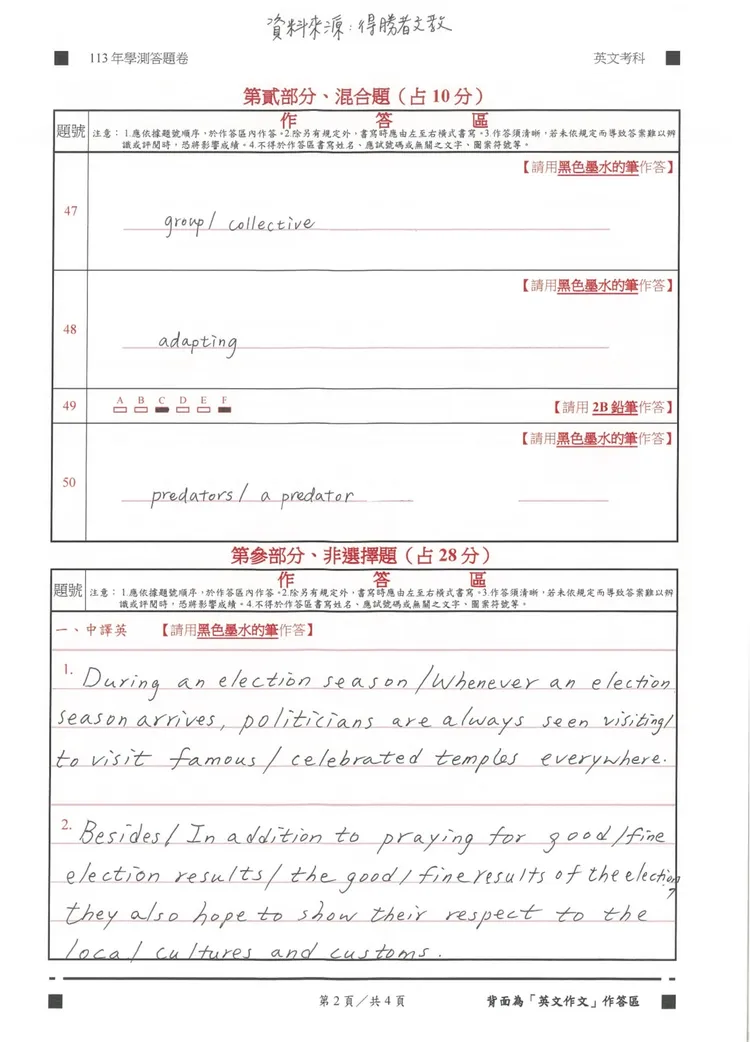 資料來源:得勝者文教
113 年學測答題卷 英文考科
第貳部分、混合題(占 10 分)
題號 作 答 區
注意:1.應依據題號順序,於作答區內作答。2.除另有規定外,書寫時應由左至右橫式書寫。3.作答須清晰,若未依規定而導致答案難以辨
識或評閱時,恐將影響成績。4.不得於作答區書寫姓名、應試號碼或無關之文字、圖案符號等。
【請用黑色墨水的筆作答】
47 group/ collective
【請用黑色墨水的筆作答】
48 adapting
49 A B C D E F 【請用 2B 鉛筆作答】
【請用黑色墨水的筆作答】
50 predators/ a predator
第參部分、非選擇題(占 28 分)
題號 作 答 區
注意:1.應依據題號順序,於作答區內作答。2.除另有規定外,書寫時應由左至右橫式書寫。3.作答須清晰,若未依規定而導致答案難以辨
識或評閱時,恐將影響成績。4.不得於作答區書寫姓名、應試號碼或無關之文字、圖案符號等。
一、中譯英 【請用黑色墨水的筆作答】
1. During an election season/Whenever an election
season arrives, politicians are always seen visiting/
to visit famous/ celebrated temples everywhere.
2. Besides/ In addition to praying for good/fine
election results/ the good/ fine results of the election,
they also hope to show their respect to the
local cultures and customs.
第 2 頁/共 4 頁 背面為「英文作文」作答區